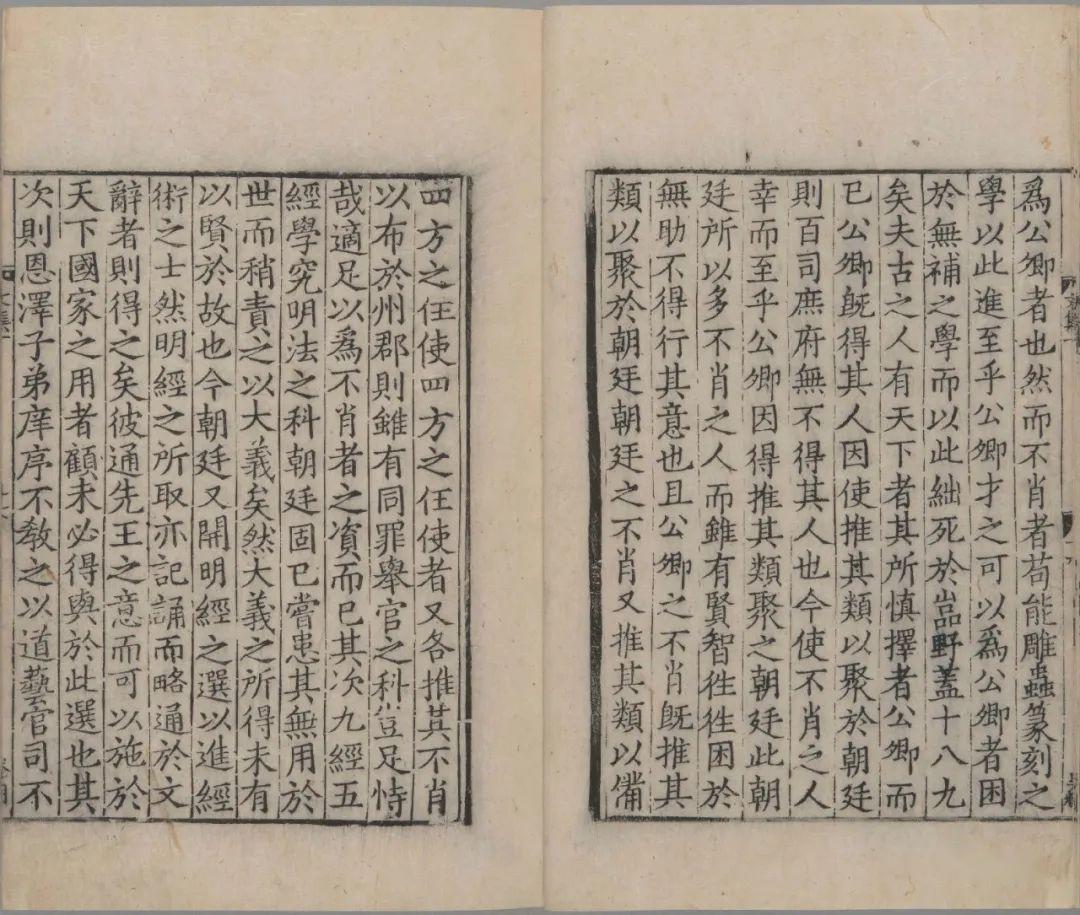 爲公卿者也然而不肖者苟能雕蟲篆刻之
學以此進至乎公卿才之可以爲公卿者困
於無補之學而以此絀死於嵓野蓋十八九
矣夫古之人有天下者其所慎擇者公卿而
已公卿旣得其人因使推其類以聚於朝廷
則百司庶府無不得其人也今使不肖之人
幸而至乎公卿因得推其類聚之朝廷此朝
廷所以多不肖之人而雖有賢智徃徃困於
無助不得行其意也且公卿之不肖旣推其
類以聚於朝廷朝廷之不肖又推其類以備
四方之任使四方之任使者又各推其不肖
以布於州郡則雖有同罪舉官之科豈足恃
哉適足以爲不肖者之資而已其次九經五
經學究明法之科朝廷固已嘗患其無用於
世而稍責之以大義矣然大義之所得未有
以賢於故也今朝廷又開明經之選以進經
術之士然明經之所取亦記誦而略通於文
辭者則得之矣彼通先王之意而可以施於
天下國家之用者顧未必得與於此選也其
次則恩澤子弟庠序不教之以道藝官司不